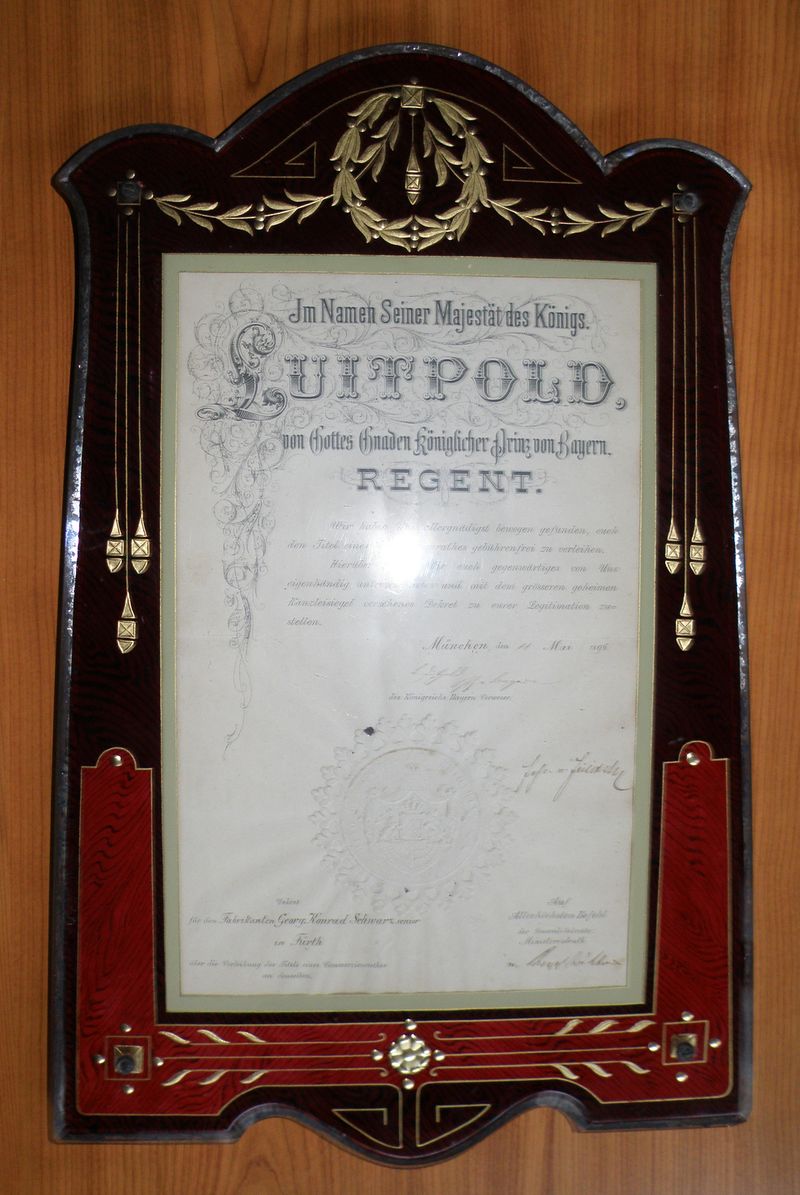 Im Namen Seiner Majestät des Königs.
LUITPOLD,
von Gottes Gnaden Königlicher Prinz von Bayern.
REGENT.
Wir haben allergnädigst bewogen gefunden, euch
den Titel eines gebührenfrei zu verleihen.
Hierüber euch gegenwärtiges von Uns
eigenhändig und mit dem grösseren geheimen
Kanzleisiegel versehenes Dekret zu eurer Legitimation zu-
stellen.
München, den Mai
des Königreichs Bayern Verweser.
Dekret
für den Fabrikanten Georg Konrad Schwarz, senior
in Fürth
über die Verleihung des Titels eines Commerzienrathes
an denselben.
Auf
Allerhöchsten Befehl
der
Ministerialrath